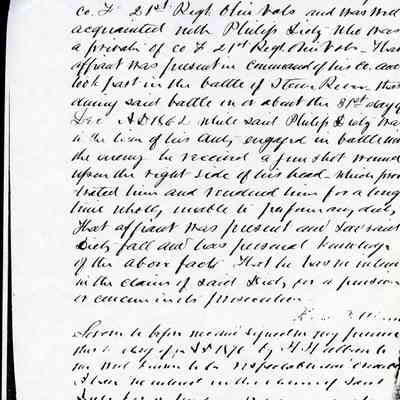 Co. F. 21st Regt Ohio Vols and was well
acquainted with Philip Diely who was
a private of Co F 21st Regt Ohio Vols. That
affiant was present in command of his Co. and
took part in the battle of Stone River. That
during said battle on or about the 31st day of
Dec AD 1862 while said Philip Diely was
in the line of his duty engaged in battle with
the enemy he received a gun shot wound
upon the right side of his head which pros
trated him and rendered him for a long
time wholly unable to perform any duty
That affiant was present and saw said
Diely fall and has personal knowledge
of the above facts That he has no interest
in the claim of said Diely for a pension
or concerned in its prosecution.
Sworn to before me and signed in my presence
this day of AD 1870 by
me well known to be respectable and
I have no interest in the claim of said